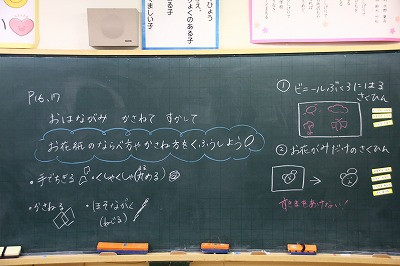 ひょう
りょくのある子
ましい子
P16.17
おはながみ かさねて すかして
お花紙のならべ方やかさね方をくふうしよう
・手でちぎる ・くしゃくしゃ(丸める)
・かさねる ・ほそながく
(ねじる)
① ビニールぶくろにはる
さくひん
② お花がみだけのさくひん
すきまをあけない!